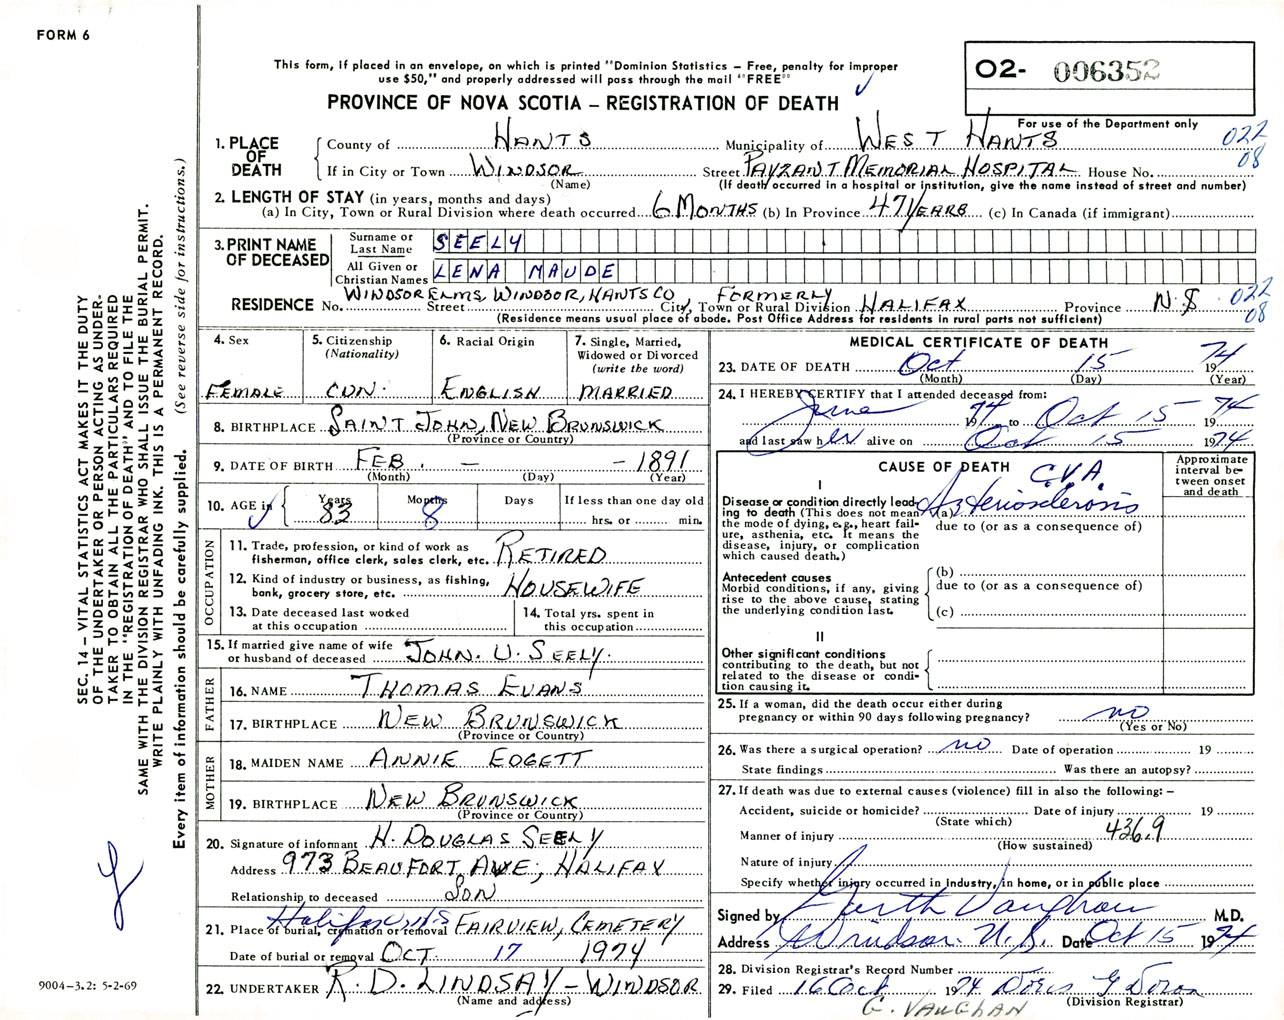 FORM 6
This form, if placed in an envelope, on which is printed "Dominion Statistics – Free, penalty for improper
use $50," and properly addressed will pass through the mail "FREE"
O2- 006352
PROVINCE OF NOVA SCOTIA – REGISTRATION OF DEATH
For use of the Department only
022
08
1. PLACE OF DEATH
County of HANTS Municipality of WEST HANTS
If in City or Town WINDSOR Street PAYZANT MEMORIAL HOSPITAL House No.
(Name) (If death occurred in a hospital or institution, give the name instead of street and number)
2. LENGTH OF STAY (in years, months and days)
(a) In City, Town or Rural Division where death occurred 6 MONTHS (b) In Province 47 YEARS (c) In Canada (if immigrant)
3. PRINT NAME OF DECEASED
Surname or Last Name SEELY
All Given or Christian Names LENA MAUDE
WINDSOR ELMS, WINDSOR, HANTS CO FORMERLY
RESIDENCE No. Street City, Town or Rural Division HALIFAX Province N.S
(Residence means usual place of abode. Post Office Address for residents in rural parts not sufficient)
022
08
4. Sex
FEMALE
5. Citizenship
(Nationality)
CDN.
6. Racial Origin
ENGLISH
7. Single, Married,
Widowed or Divorced
(write the word)
MARRIED
8. BIRTHPLACE SAINT JOHN, NEW BRUNSWICK
(Province or Country)
9. DATE OF BIRTH FEB. – – 1891
(Month) (Day) (Year)
10. AGE in Years Months Days If less than one day old
83 8 hrs. or min.
OCCUPATION
11. Trade, profession, or kind of work as
fisherman, office clerk, sales clerk, etc. RETIRED
12. Kind of industry or business, as fishing,
bank, grocery store, etc. HOUSEWIFE
13. Date deceased last worked
at this occupation
14. Total yrs. spent in
this occupation
15. If married give name of wife
or husband of deceased JOHN. U. SEELY.
FATHER
16. NAME THOMAS EVANS
17. BIRTHPLACE NEW BRUNSWICK
(Province or Country)
MOTHER
18. MAIDEN NAME ANNIE EDGETT
19. BIRTHPLACE NEW BRUNSWICK
(Province or Country)
20. Signature of informant H. DOUGLAS SEELY
Address 973 BEAUFORT AVE; HALIFAX
Relationship to deceased SON
Halifax N.S
21. Place of burial, cremation or removal FAIRVIEW, CEMETERY
Date of burial or removal OCT. 17 1974
22. UNDERTAKER R. D. LINDSAY – WINDSOR
(Name and address)
MEDICAL CERTIFICATE OF DEATH
23. DATE OF DEATH Oct 15 1974
(Month) (Day) (Year)
24. I HEREBY CERTIFY that I attended deceased from:
June 1974 to Oct 15 1974
and last saw her alive on Oct 15 1974
CAUSE OF DEATH
Approximate
interval be-
tween onset
and death
I
C.V.A.
Disease or condition directly lead-
ing to death (This does not mean
the mode of dying, e.g., heart fail-
ure, asthenia, etc. It means the
disease, injury, or complication
which caused death.)
(a) Arteriosclerosis
due to (or as a consequence of)
Antecedent causes
Morbid conditions, if any, giving
rise to the above cause, stating
the underlying condition last.
(b)
due to (or as a consequence of)
(c)
II
Other significant conditions
contributing to the death, but not
related to the disease or condi-
tion causing it.
25. If a woman, did the death occur either during
pregnancy or within 90 days following pregnancy? no
(Yes or No)
26. Was there a surgical operation? no Date of operation 19
State findings Was there an autopsy?
27. If death was due to external causes (violence) fill in also the following: –
Accident, suicide or homicide? Date of injury 19
(State which)
436.9
Manner of injury
(How sustained)
Nature of injury
Specify whether injury occurred in industry, in home, or in public place
Signed by Garth Vaughan M.D.
Address Windsor. N.S. Date Oct 15 1974
28. Division Registrar's Record Number
29. Filed 16 Oct 1974 Doris G Doran
(Division Registrar)
G. VAUGHAN
SEC. 14 – VITAL STATISTICS ACT MAKES IT THE DUTY
OF THE UNDERTAKER OR PERSON ACTING AS UNDER-
TAKER TO OBTAIN ALL THE PARTICULARS REQUIRED
IN THE "REGISTRATION OF DEATH" AND TO FILE THE
SAME WITH THE DIVISION REGISTRAR WHO SHALL ISSUE THE BURIAL PERMIT.
WRITE PLAINLY WITH UNFADING INK. THIS IS A PERMANENT RECORD.
Every item of information should be carefully supplied. (See reverse side for instructions.)
9004-3.2: 5-2-69